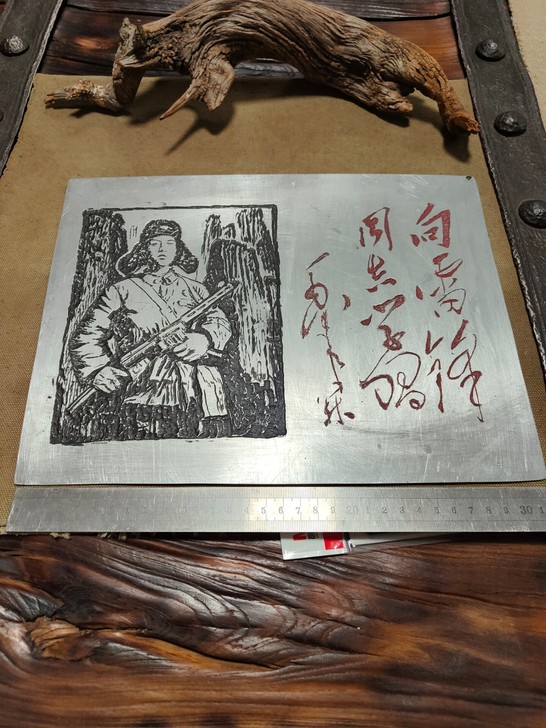 向雷锋
同志学习
毛泽东
4 5 6 7 8 9 20 1 2 3 4 5 6 7 8 9 30 1